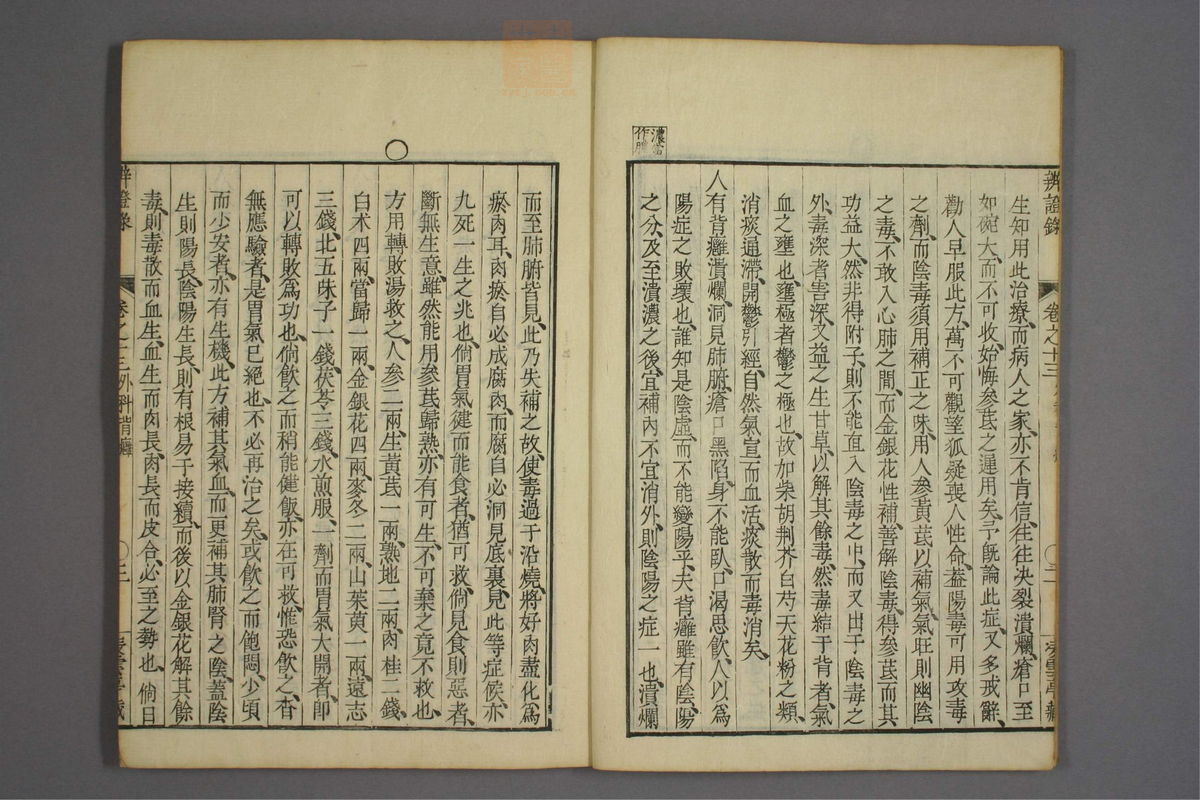 濃當
作膿
辨證錄
卷之十三
生知用此治療、而病人之家、亦不肯信、往往決裂潰爛、瘡口至
如碗大、而不可收、始悔參芪之遲用矣、予旣論此症、又多戒辭、
勸人早服此方、萬不可觀望狐疑、喪人性命、葢陽毒可用攻毒
之劑、而陰毒須用補正之味、用人參黃芪以補氣、氣旺則幽陰
之毒、不敢入心肺之間、而金銀花性補、善解陰毒、得參芪而其
功益大、然非得附子、則不能直入陰毒之中、而又出于陰毒之
外、毒深者害深、又益之生甘草、以解其餘毒、然毒結于背者、氣
血之壅也、壅極者鬱之極也、故加柴胡荆芥白芍天花粉之類、
消痰通滯、開鬱引經、自然氣宣而血活、痰散而毒消矣、
人有背癰潰爛、洞見肺腑、瘡口黑陷、身不能臥、口渴思飲、人以爲
陽症之敗壞也、誰知是陰虛而不能變陽乎、夫背癰雖有陰陽
之分、及至潰濃之後、宜補內不宜消外、則陰陽之症一也、潰爛
而至肺腑皆見、此乃失補之故、使毒過于沿燒、將好肉盡化爲
瘀肉耳、肉瘀自必成腐肉、而腐自必洞見底裏、見此等症候、亦
九死一生之兆也、倘胃氣健而能食者、猶可救、倘見食則惡者、
斷無生意、雖然能用參芪歸熟、亦有可生、不可棄之竟不救也
方用轉敗湯救之、人參二兩、生黃芪一兩、熟地二兩、肉桂二錢、
白朮四兩、當歸一兩、金銀花四兩、麥冬二兩、山茱萸一兩、遠志
三錢、北五味子一錢、茯苓三錢、水煎服、一劑而胃氣大開者、卽
可以轉敗爲功也、倘飲之而稍能健飯、亦在可救、惟恐飲之、杳
無應驗者、是胃氣已絕也、不必再治之矣、或飲之而飽悶、少頃
而少安者、亦有生機、此方補其氣血、而更補其肺腎之陰、蓋陰
生則陽長、陰陽生長、則有根易于接續、而後以金銀花解其餘
毒、則毒散而血生、血生而肉長、肉長而皮合、必至之勢也、倘日
辨證錄
卷之十三外科背癰